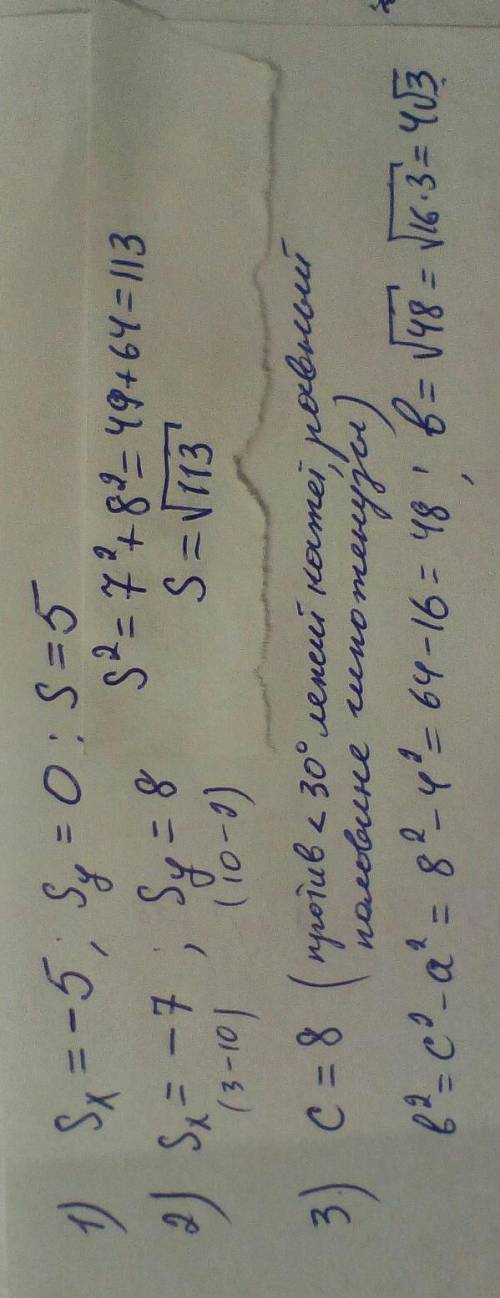 1) Sx = -5; Sy = 0; S = 5
2) Sx = -7; Sy = 8
(3-10) (10-2)
S² = 7² + 8² = 49 + 64 = 113
S = √113
3) c = 8 (против < 30° лежит катет, равный
половине гипотенузы)
b² = c² - a² = 8² - 4² = 64 - 16 = 48; b = √48 = √16·3 = 4√3